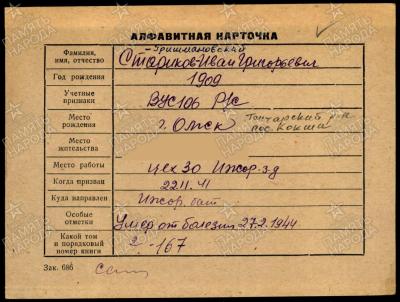 АЛФАВИТНАЯ КАРТОЧКА
-Гришмановский
Фамилия, имя, отчество Стариков-Иван Григорьевич
Год рождения 1909
Учетные признаки ВУС106 Р/с
Место рождения г. Омск Гончарский р-н пос. Кокша
Место жительства
Место работы цех 30 Ижор. з-д
Когда призван 22 11. 41
Куда направлен Ижор. бат.
Особые отметки Умер от болезни 27.2.1944
Какой том и порядковый номер книги 2 -167
Зак. 686
ПАМЯТЬ НАРОДА